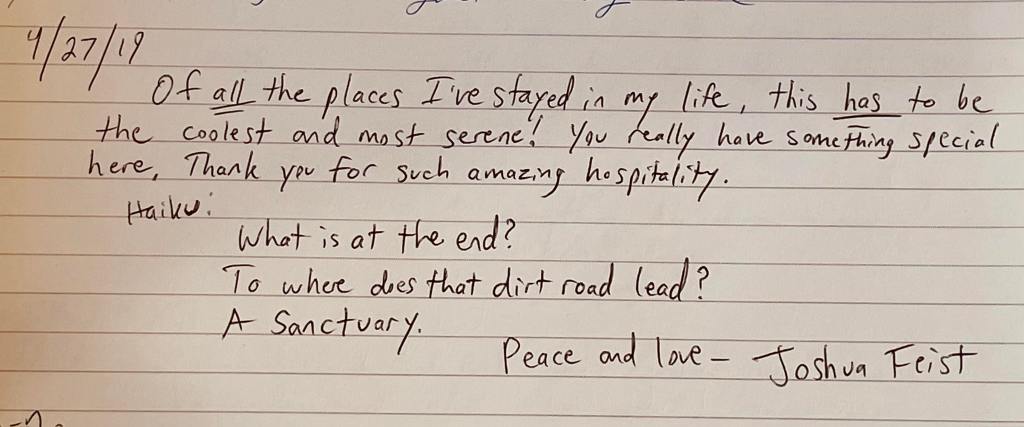 4/27/19
Of all the places I've stayed in my life, this has to be
the coolest and most serene! You really have something special
here, Thank you for such amazing hospitality.
Haiku:
What is at the end?
To where does that dirt road lead?
A Sanctuary.
Peace and love - Joshua Feist